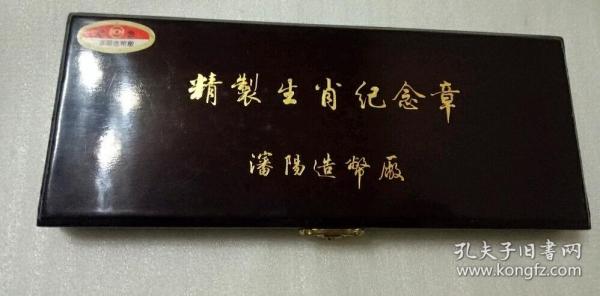 精製生肖纪念章
瀋陽造幣厰
孔夫子旧书网
www.kongfz.com